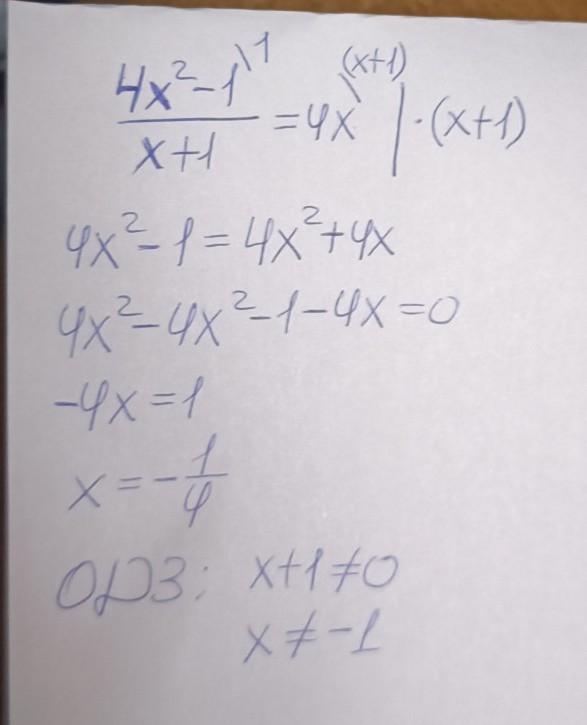 (4x²-1)\1/(x+1) = 4x\(x+1) | ·(x+1)
4x²-1=4x²+4x
4x²-4x²-1-4x=0
-4x=1
x=-1/4
ОДЗ: x+1≠0
x≠-1